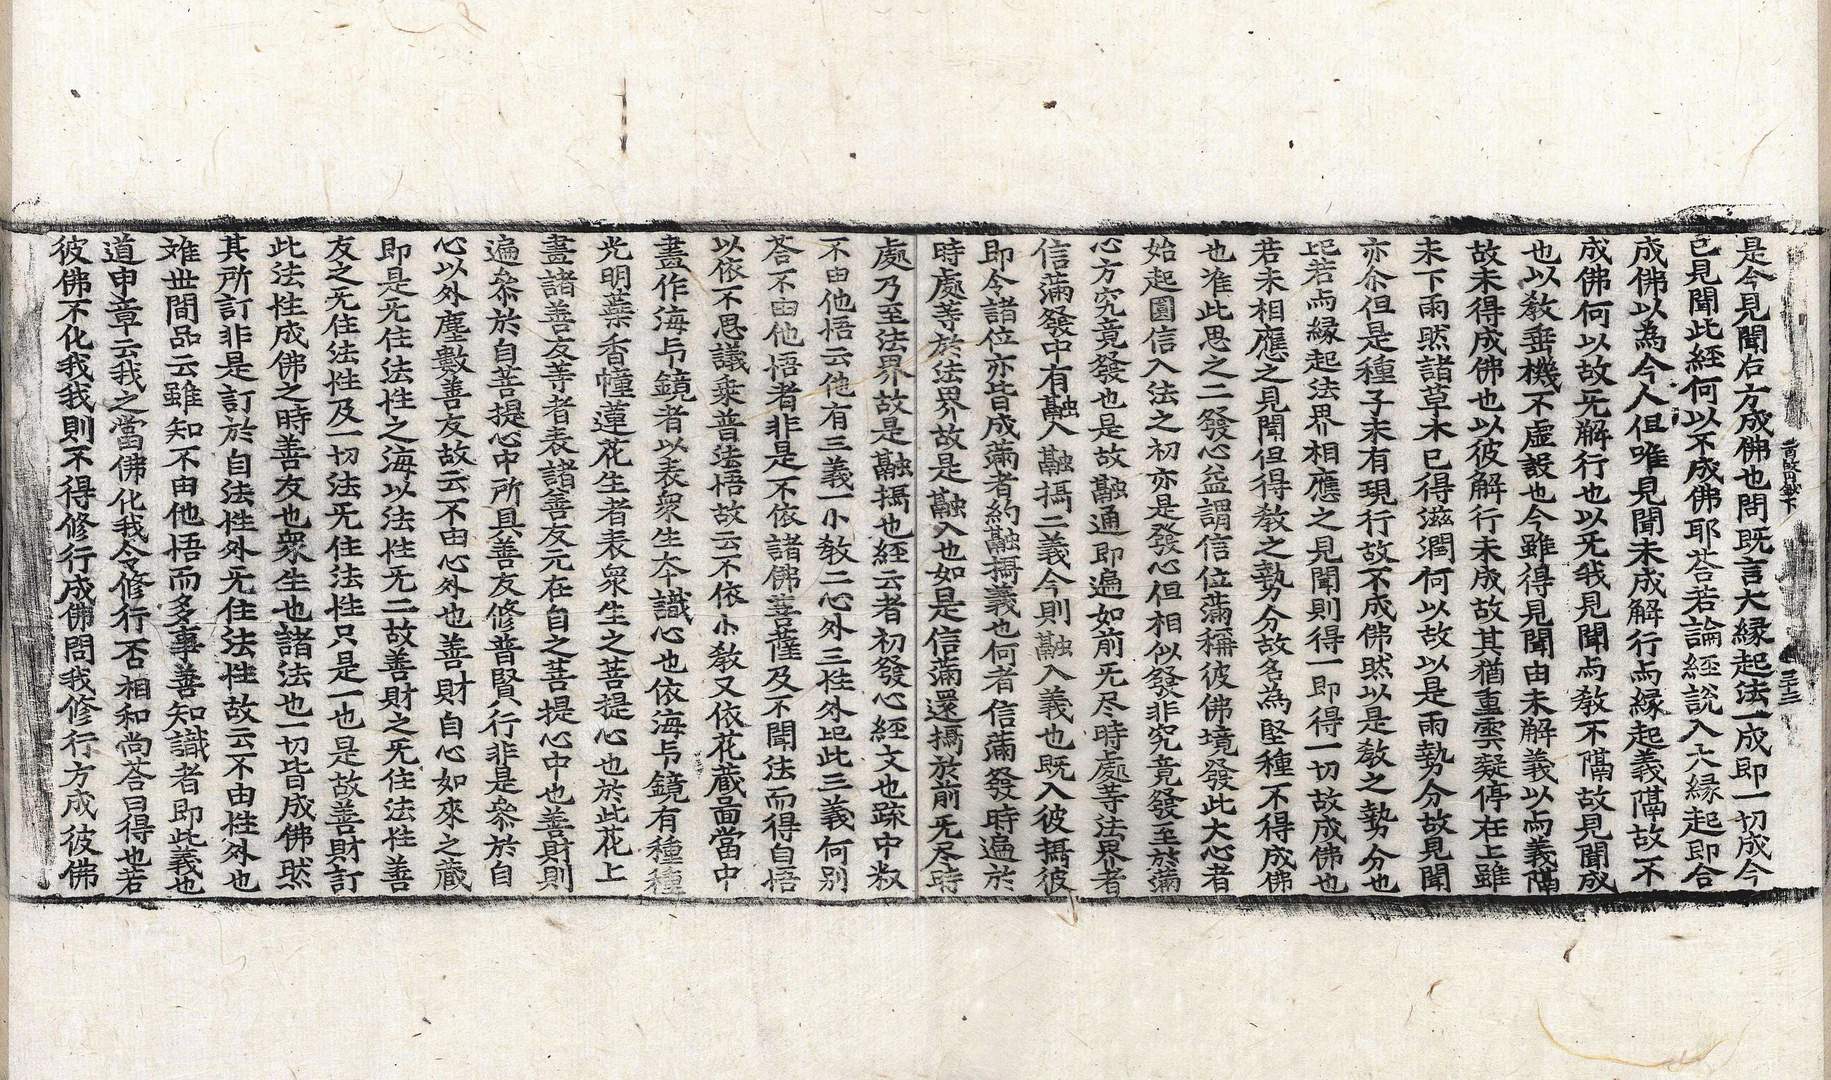 是今見聞后方成佛也問既言大縁起法一成即一切成今
已見聞此經何以不成佛耶荅若論經説入大縁起即合
成佛以為今人但唯見聞未成解行与縁起義隔故不
成佛何以故旡解行也以旡我見聞与教不隔故見聞成
也以教垂機不虚設也今雖得見聞由未解義以与義隔
故未得成佛也以彼解行未成故其猶重雲凝停在上雖
未下雨然諸草木已得滋潤何以故以是雨勢分故見聞
亦尒但是種子未有現行故不成佛然以是教之勢分也
是若与縁起法界相應之見聞則得一即得一切故成佛也
若未相應之見聞但得教之勢分故名為堅種不得成佛
也准此思之二發心益謂信位滿稱彼佛境發此大心者
始起圓信入法之初亦是發心但相似發非究竟發至於滿
心方究竟發也是故融通即遍如前旡尽時處等法界者
信滿發中有融人融攝二義今則融入義也既入彼攝彼
即令諸位亦皆成滿者約融攝義也何者信滿發時遍於
時處等於法界故是融入也如是信滿還攝於前旡尽時
處乃至法界故是融攝也經云者初發心經文也踈中叙
不由他悟云他有三義一小教二心外三性外此三義何別
荅不由他悟者非是不依諸佛菩薩及不聞法而得自悟
以依不思議乘普法悟故云不依小教又依花蔵品當中
畫作海与鏡者以表衆生夲識心也依海与鏡有種種
光明蘂香幢蓮花生者表衆生之菩提心也於此花上
畫諸善友等者表諸善友元在自之菩提心中也善財則
遍叅於自菩提心中所具善友修普賢行非是叅於自
心以外塵數善友故云不由心外也善財自心如來之蔵
即是旡住法性之海以法性旡二故善財之旡住法性善
友之旡住法性及一切法旡住法性只是一也是故善財訂
此法性成佛之時善友也衆生也諸法也一切皆成佛然
其所訂非是訂於自法性外旡住法性故云不由性外也
难世間品云雖知不由他悟而多事善知識者即此義也
道申章云我之當佛化我令修行否相和尚荅曰得也若
彼佛不化我我則不得修行成佛問我修行方成彼佛